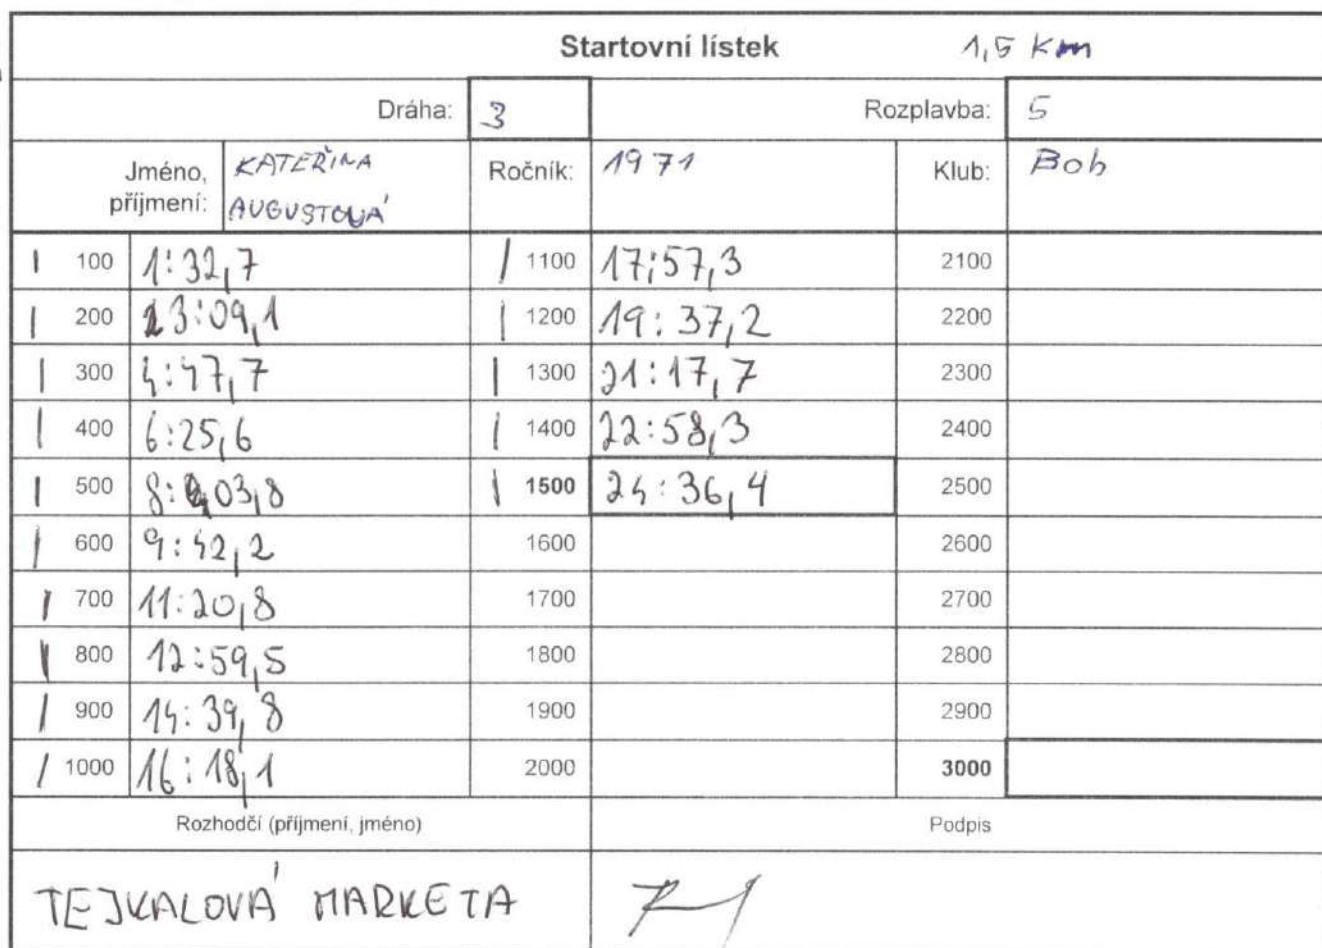 Startovní lístek 1,5 Km
Dráha: 3 Rozplavba: 5
Jméno, příjmení: KATEŘINA AUGUSTOVÁ Ročník: 1971 Klub: Boh
100 1:32,7 1100 17:57,3 2100
200 3:09,1 1200 19:37,2 2200
300 4:47,7 1300 21:17,7 2300
400 6:25,6 1400 22:58,3 2400
500 8:03,8 1500 24:36,4 2500
600 9:42,2 1600 2600
700 11:20,8 1700 2700
800 12:59,5 1800 2800
900 14:39,8 1900 2900
1000 16:18,1 2000 3000
Rozhodčí (příjmení, jméno) Podpis
TEJKALOVÁ MARKETA